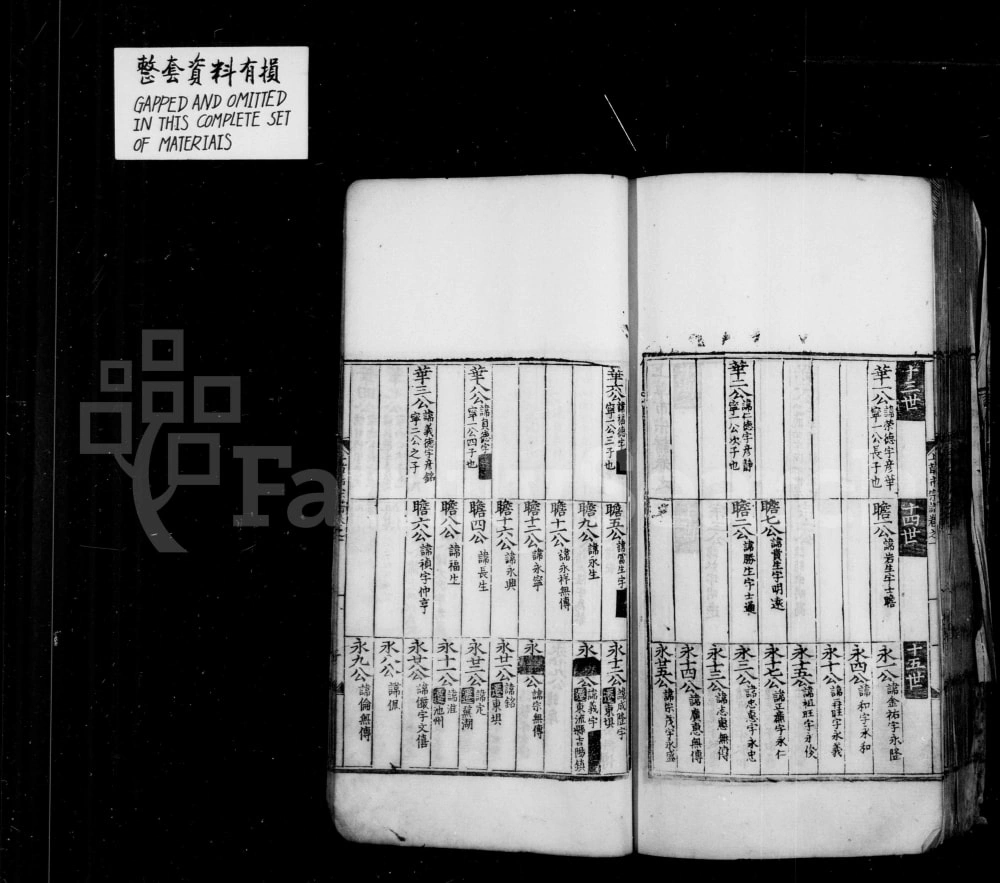 整套資料有損
GAPPED AND OMITTED
IN THIS COMPLETE SET
OF MATERIALS
十三世
華一公 諱榮德字彦華
寧一公長子也
華二公 諱仁德字彦
寧一公次子也
十四世
瞻一公 諱岩生字士瞻
瞻七公 諱貴生字明遠
瞻二公 諱勝生字士通
十五世
永一公 諱金祐字永隆
永四公 諱和字永和
永十公 諱再旺字永義
永十五公 諱祖旺字永俊
永十七公 諱正字永仁
永三公 諱忠惠字永忠
永十三公 諱志惠無傳
永十四公 諱廣惠無傳
永廿五公 諱榮茂字永盛
華六公 諱福德字
寧一公三子也
華八公 諱貞德字
寧一公四子也
華三公 諱義德字彦銘
寧二公之子
瞻五公 諱富生字
瞻九公 諱永生
瞻十一公 諱永祥無傳
瞻十二公 諱永寧
瞻十六公 諱永興
瞻四公 諱長生
瞻八公 諱福生
瞻六公 諱禎字仲亨
永十二公 諱成隆字
遷東埧
永 公 諱義字
遷東流縣吉陽鎮
永 公 諱宗無傳
永廿六公 諱銘
遷東埧
永廿二公 諱定
遷蕪湖
永十一公 諱淮
遷池州
永廿八公 諱儼字文僖
永八公 諱佩
永九公 諱倫無傳